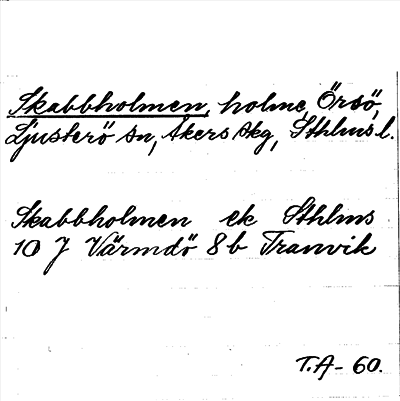 Skabbholmen, holme, Örsö,
Ljusterö sn, Åkers skg, Sthlms l.
Skabbholmen ek Sthlms
10 J Värmdö 8b Tranvik
T.A-60.